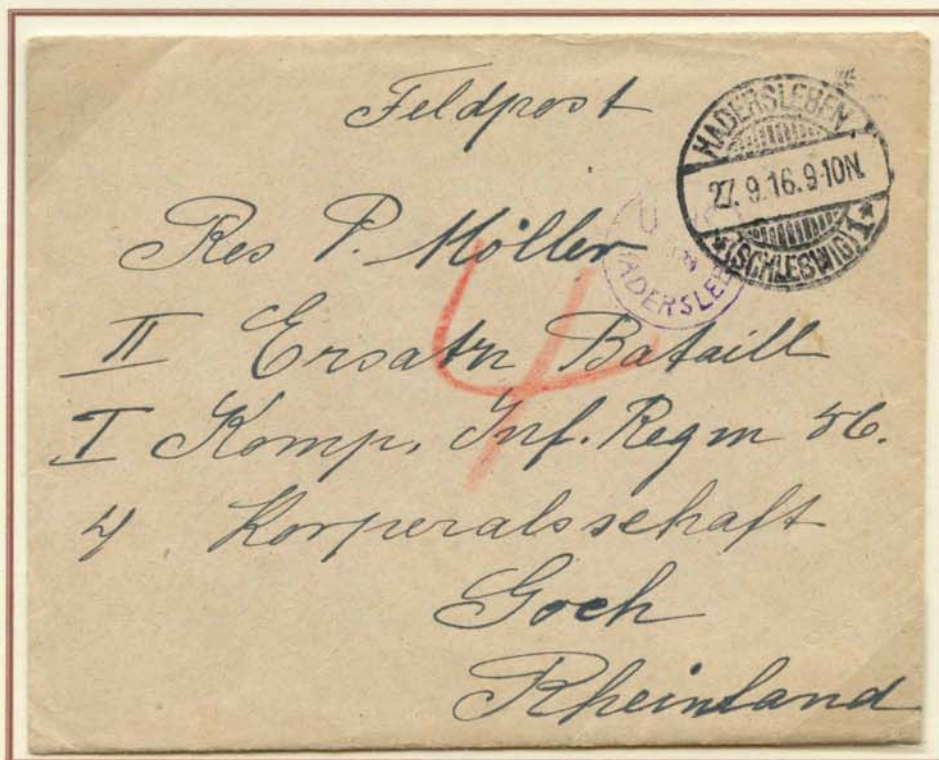 Feldpost
HADERSLEBEN
27.9.16.9-10N.
*(SCHLESWIG)1*
HADERSLEB
Res P. Möller
II Ersatz Bataill
I Komp. Inf. Regm 56.
4 Korperalsschaft
Goch
Rheinland
4